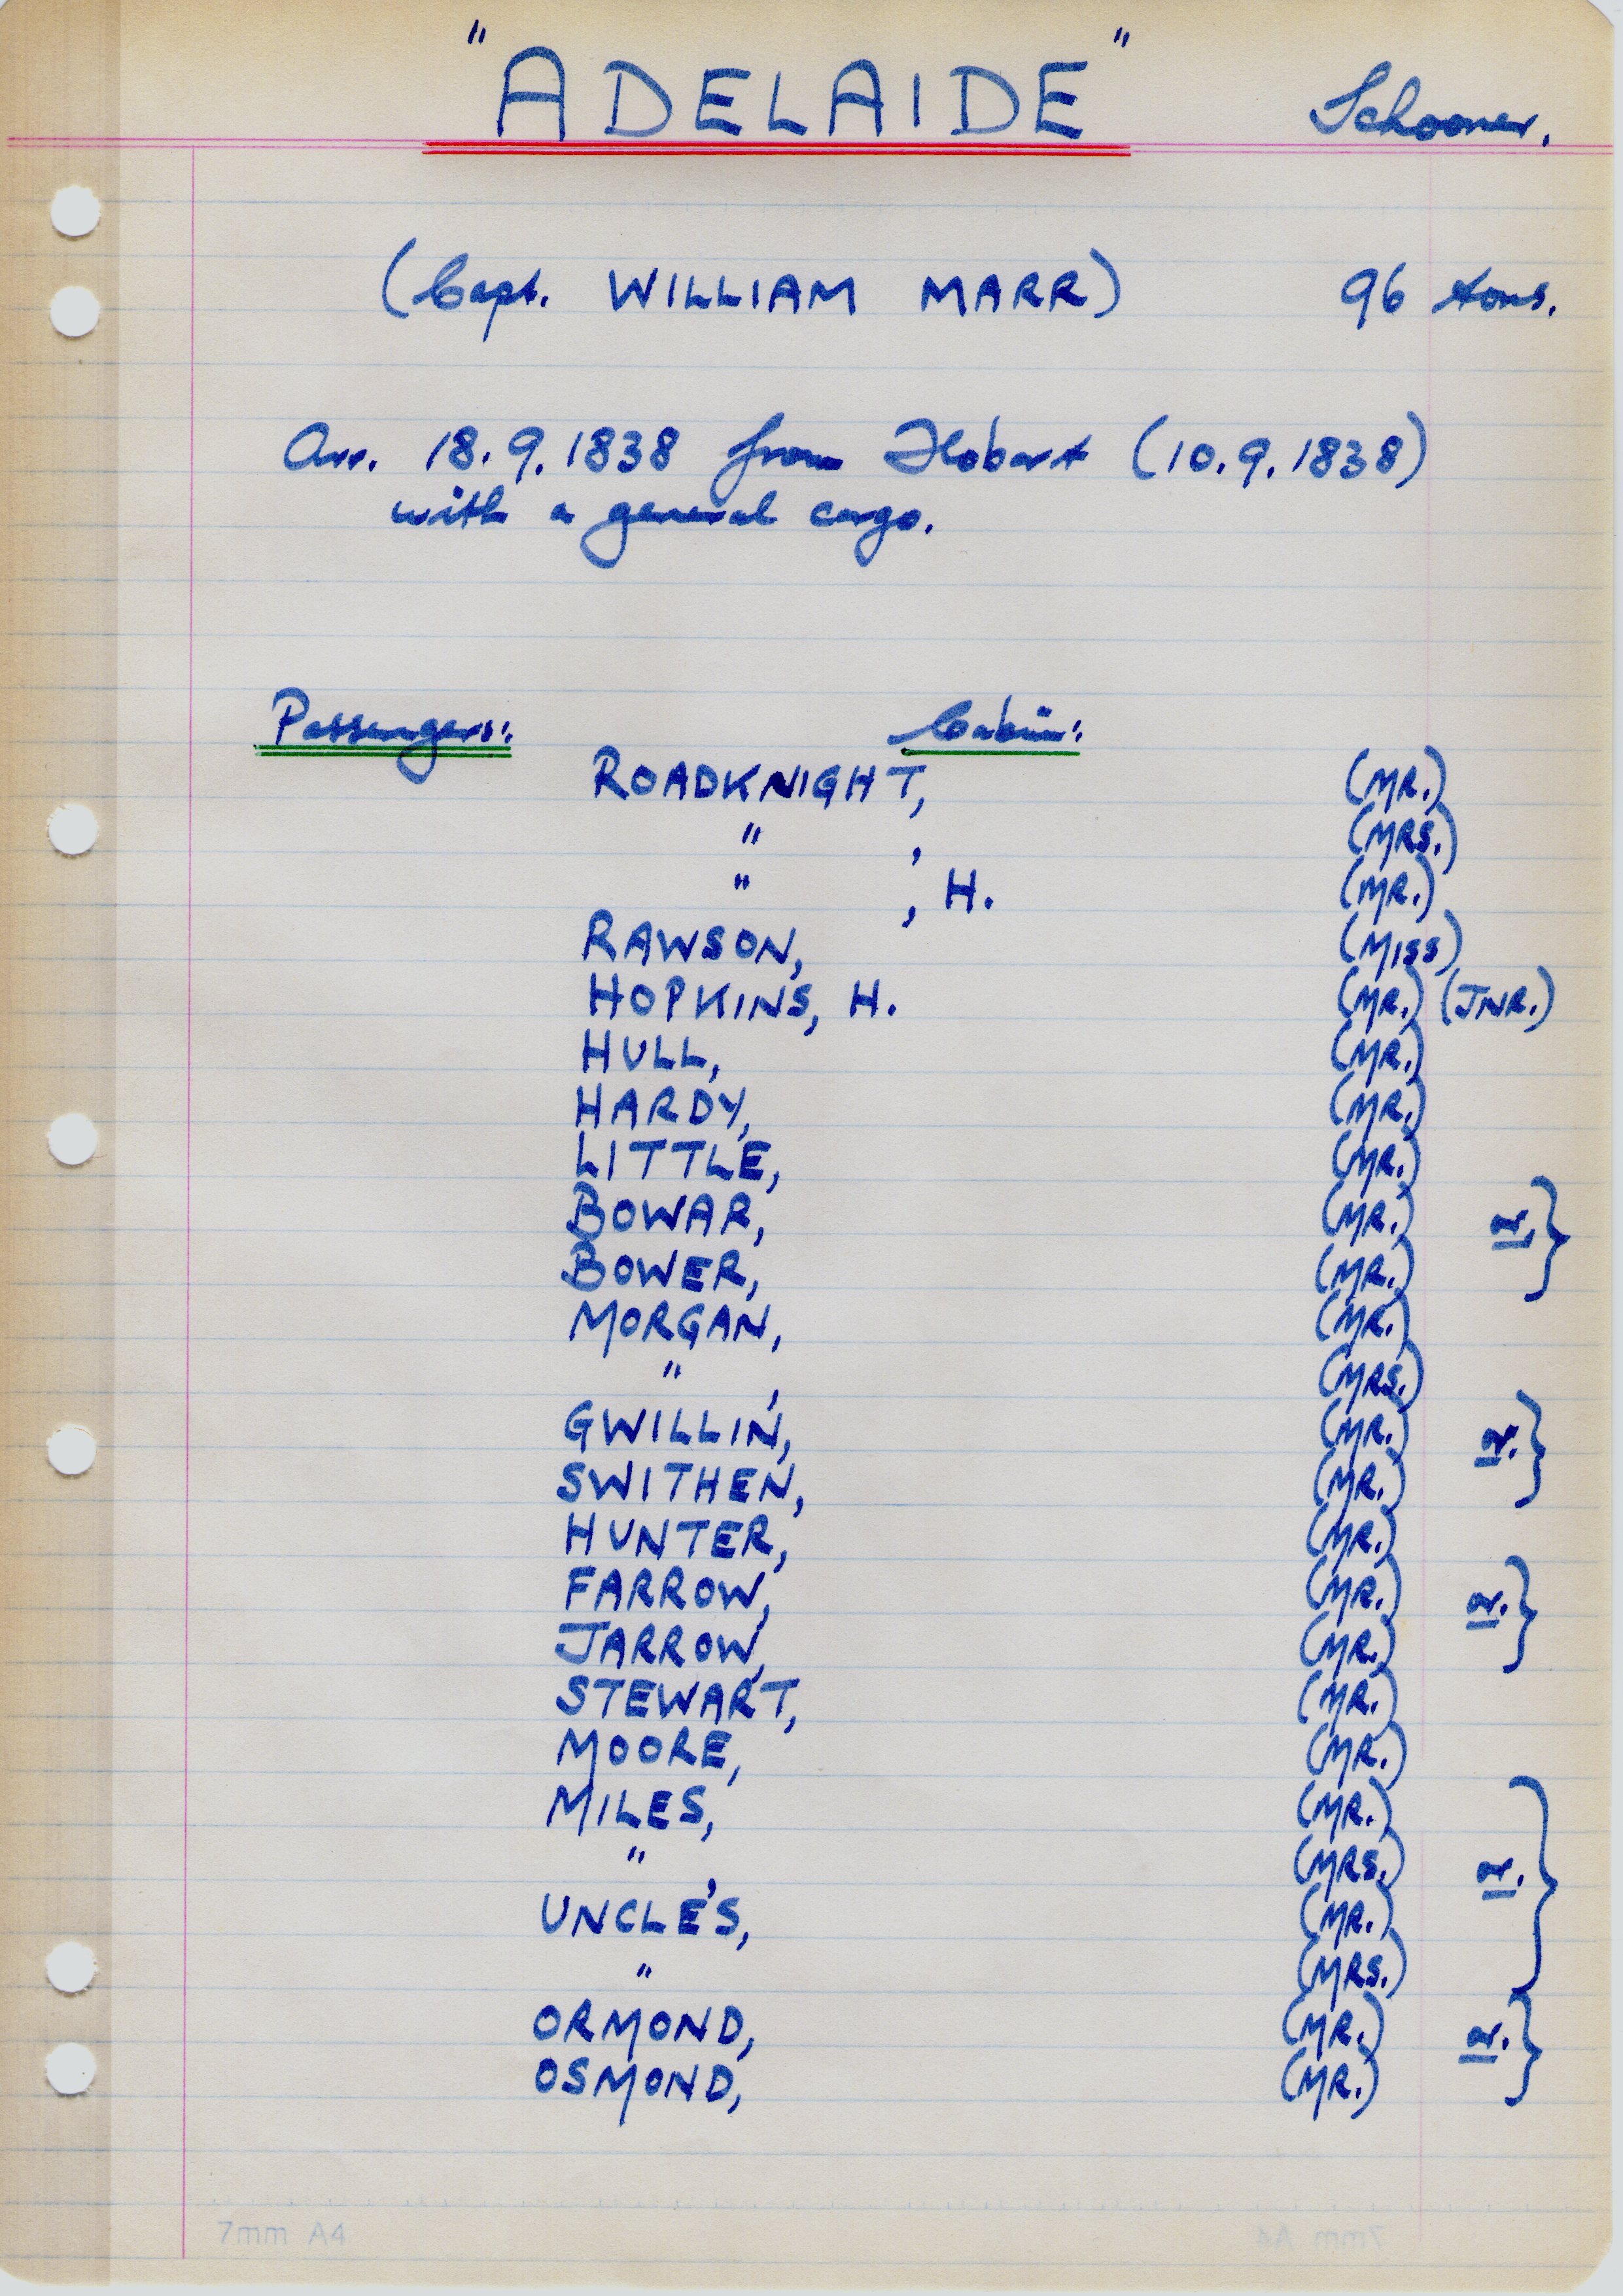 "ADELAIDE" Schooner.
(Capt. WILLIAM MARR) 96 tons.
Arr. 18.9.1838 from Hobart (10.9.1838)
with a general cargo.
Passengers: Cabin:
ROADKNIGHT, (MR.)
" , (MRS.)
" , H. (MR.)
RAWSON, (MISS)
HOPKINS, H. (MR.) (JNR.)
HULL, (MR.)
HARDY, (MR.)
LITTLE, (MR.)
BOWAR, (MR.) or. }
BOWER, (MR.)
MORGAN, (MR.)
" , (MRS.)
GWILLIN, (MR.) or. }
SWITHEN, (MR.)
HUNTER, (MR.)
FARROW, (MR.) or. }
JARROW, (MR.)
STEWART, (MR.)
MOORE, (MR.)
MILES, (MR.)
" , (MRS.) or. }
UNCLE'S, (MR.)
" (MRS.)
ORMOND, (MR.) or. }
OSMOND, (MR.)
7mm A4 7mm A4